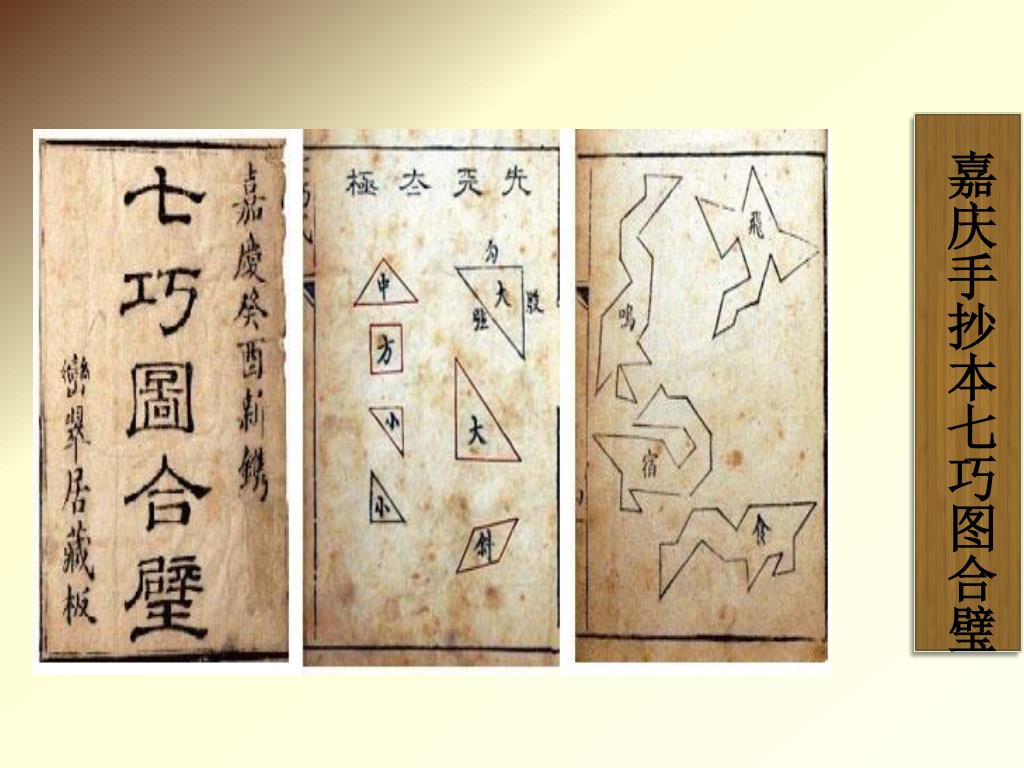 嘉庆手抄本七巧图合璧
嘉慶癸酉新鐫
七巧圖合璧
巒翠居藏板
先天太極
勾
大
股
弦
大
斜
中
方
小
小
飛
鳴
宿
食